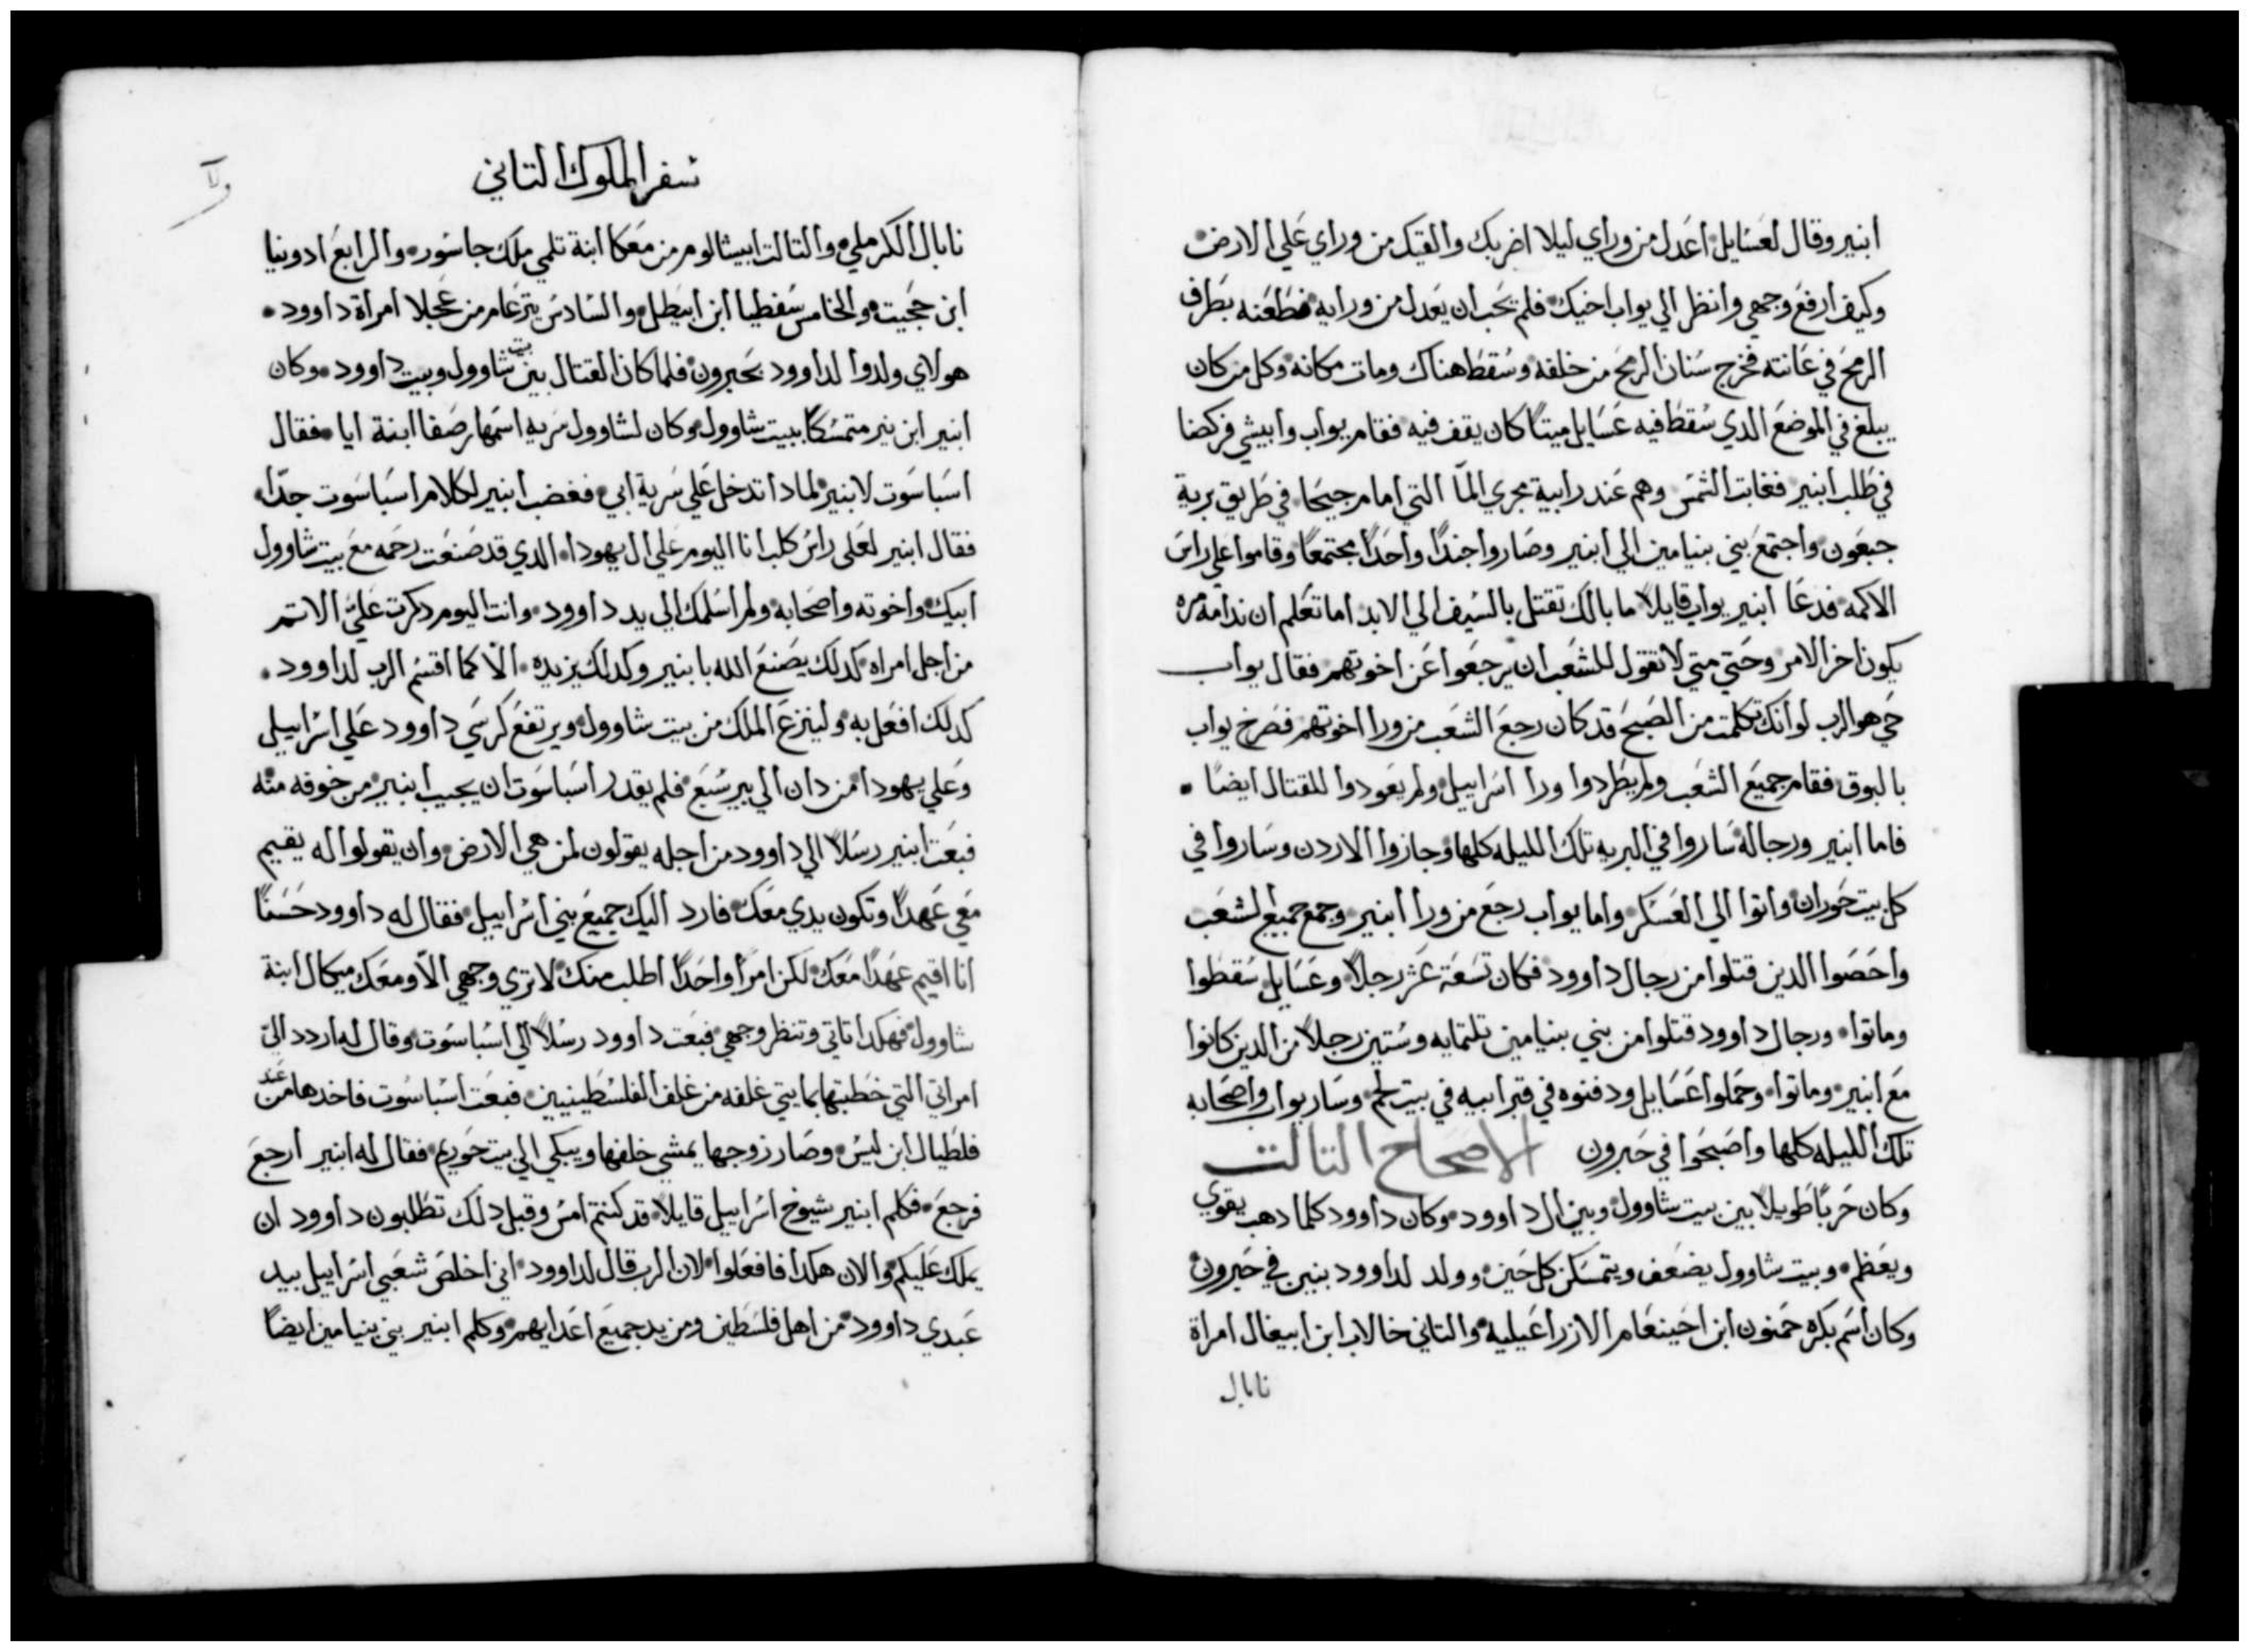 ابنير وقال لعسايل اعدل من وراي ليلا اضربك والقيك من وراي علي الارض
وكيف ارفع وجهي وانظر الي يواب اخيك فلم يحب ان يعدل من ورايه فطعنه بطرف
الرمح في عانته فخرج سنان الرمح من خلفه وسقط هناك ومات مكانه وكل من كان
يبلغ في الموضع الدي سقط فيه عسايل ميتاً كان يقف فيه فقام يواب وابيشي فركضا
في طلب ابنير فغابت الشمس وهم عند رابية مجري المآ التي امام جيحا في طريق برية
جبعون واجتمع بني بنيامين الي ابنير وصاروا جنداً واحداً مجتمعاً وقاموا علي راس
الاكمه فدعا ابنير يواب قايلاً ما بالك تقتل بالسيف الي الابد اما تعلم ان ندامة مره
يكون اخر الامر وحتي متي لا تقول للشعب ان يرجعوا عن اخوتهم فقال يواب
حي هو الرب لو انك تكلمت من الصبح قد كان رجع الشعب من ورا اخوتهم فصرخ يواب
بالبوق فقام جميع الشعب ولم يطردوا ورا اسراييل ولم يعودوا للقتال ايضاً
فاما ابنير ورجاله ساروا في البريه تلك الليله كلها وجازوا الاردن وساروا في
كل بيت حوران واتوا الي العسكر واما يواب رجع من ورا ابنير وجمع جميع الشعب
واحصوا الدين قتلوا من رجال داوود فكان تسعة عشر رجلاً وعسايل سقطوا
وماتوا ورجال داوود قتلوا من بني بنيامين تلتمايه وستين رجلاً من الدين كانوا
مع ابنير وماتوا وحملوا عسايل ودفنوه في قبر ابيه في بيت لحم وسار يواب واصحابه
تلك الليله كلها واصبحوا في حبرون الاصحاح التالت
وكان حرباً طويلاً بين بيت شاوول وبين ال داوود وكان داوود كلما دهب يقوي
ويعظم وبيت شاوول يضعف ويتمسكن كل حين وولد لداوود بنين في حبرون
وكان اسم بكره حمنون ابن احينعام الازراعيليه والتاني خالاب ابن ابيغال امراة
نابال
سفر الملوك التاني
نابال الكرملي والتالت ابيشالوم من معكا ابنة تلمي ملك جاسور والرابع ادونيا
ابن حجيت والخامس سفطيا ابن ابيطل والسادس يترعام من عجلا امراة داوود
هولاي ولدوا لداوود بحبرون فلما كان القتال بين بيت شاوول وبيت داوود وكان
ابنير ابن نير متمسكاً ببيت شاوول وكان لشاوول سريه اسمها رصفا ابنة ايا فقال
اسباسوت لابنير لمادا تدخل علي سرية ابي فغضب ابنير لكلام اسباسوت جدّاً
فقال ابنير لعلي راس كلب انا اليوم علي ال يهودا الدي قد صنعت رحمه مع بيت شاوول
ابيك واخوته واصحابه ولم اسلمك الي يد داوود وانت اليوم دكرت عليّ الاتم
من اجل امراه كدلك يصنع الله بابنير وكدلك يزيده الّا كما اقسم الرب لداوود
كدلك افعل به ولينزع الملك من بيت شاوول ويرتفع كرسي داوود علي اسراييل
وعلي يهودا من دان الي بير سبع فلم يقدر اسباسوت ان يجيب ابنير من خوفه منه
فبعت ابنير رسلاً الي داوود من اجله يقولون لمن هي الارض وان يقولوا له يقيم
معي عهداً وتكون يدي معك فارد اليك جميع بني اسراييل فقال له داوود حسناً
انا اقيم عهداً معك لكن امراً واحداً اطلب منك لا تري وجهي الّا ومعك ميكال ابنة
شاوول فهكدا تاتي وتنظر وجهي فبعت داوود رسلاً الي اسباسوت وقال له اردد اليّ
امراتي التي خطبتها بمايتي غلفه من غلف الفلسطينيين فبعت اسباسوت فاخدها من عند
فلطيال ابن ليس وصار زوجها يمشي خلفها ويبكي الي بيت حوريم فقال له ابنير ارجع
فرجع فكلم ابنير شيوخ اسراييل قايلاً قد كنتم امس وقبل دلك تطلبون داوود ان
يملك عليكم والان هكدا فافعلوا لان الرب قال لداوود اني اخلص شعبي اسراييل بيد
عبدي داوود من اهل فلسطين ومن يد جميع اعدايهم وكلم ابنير بني بنيامين ايضاً